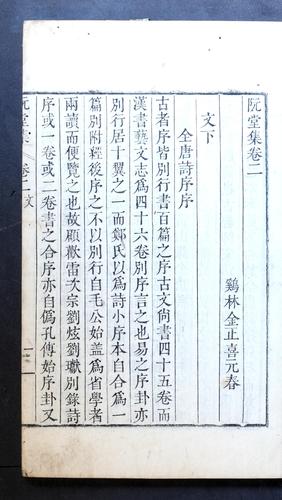 阮堂集卷二
鷄林金正喜元春
文下
全唐詩序序
古者序皆別行書百篇之序古文尙書四十五卷而
漢書藝文志爲四十六卷別序言之也易之序卦亦
別行居十翼之一而鄭氏以爲詩小序本自合爲一
篇別附經後序之不以別行自毛公始盖爲省學者
兩讀而便覽之也故顧歡雷次宗劉炫劉瓛別錄詩
序或一卷或二卷書之合序亦自僞孔傳始序卦又
阮堂集 卷二文 一